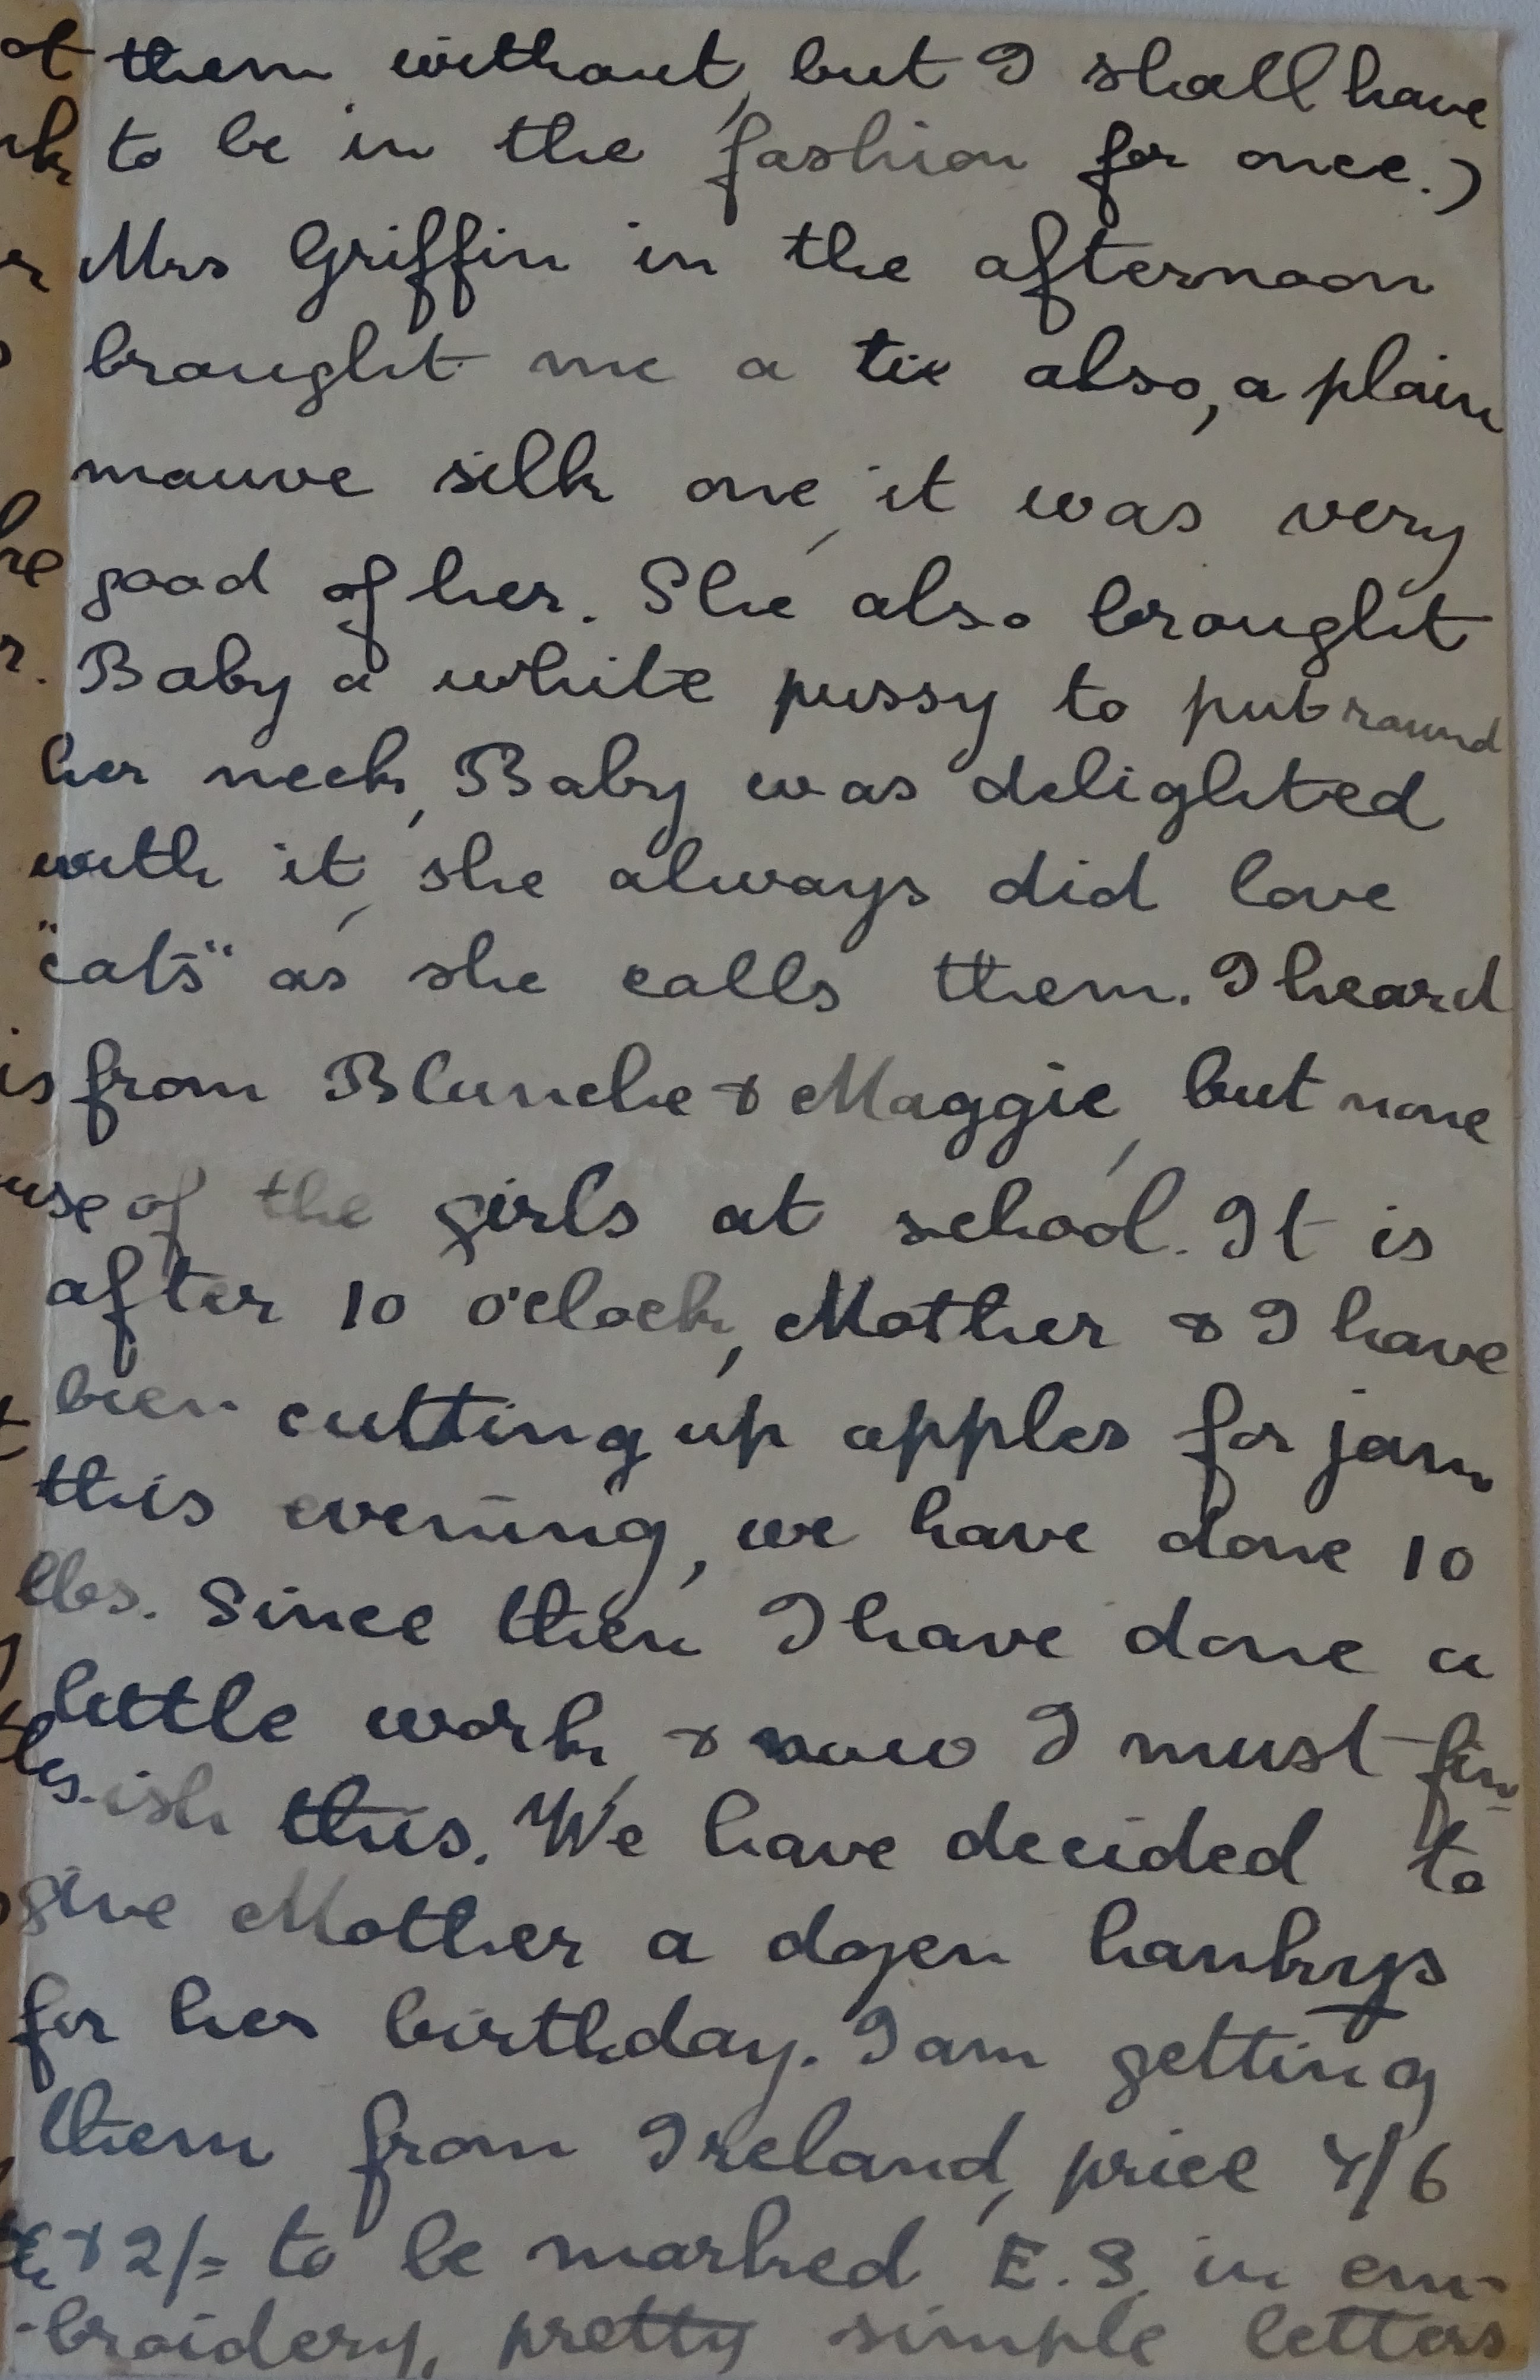 them without, but I shall have
to be in the fashion for once.)
Mrs Griffin in the afternoon
brought me a tie also, a plain
mauve silk one, it was very
good of her. She also brought
Baby a white pussy to put round
her neck, Baby was delighted
with it, she always did love
"cats" as she calls them. I heard
from Blanche & Maggie, but none
of the girls at school. It is
after 10 o'clock, Mother & I have
been cutting up apples for jam
this evening, we have done 10
lbs. Since then I have done a
little work, & now I must fin-
ish this. We have decided to
give Mother a dozen hankys
for her birthday. I am getting
them from Ireland, price 4/6
& 2/= to be marked E.S. in em-
-broidery, pretty simple letters